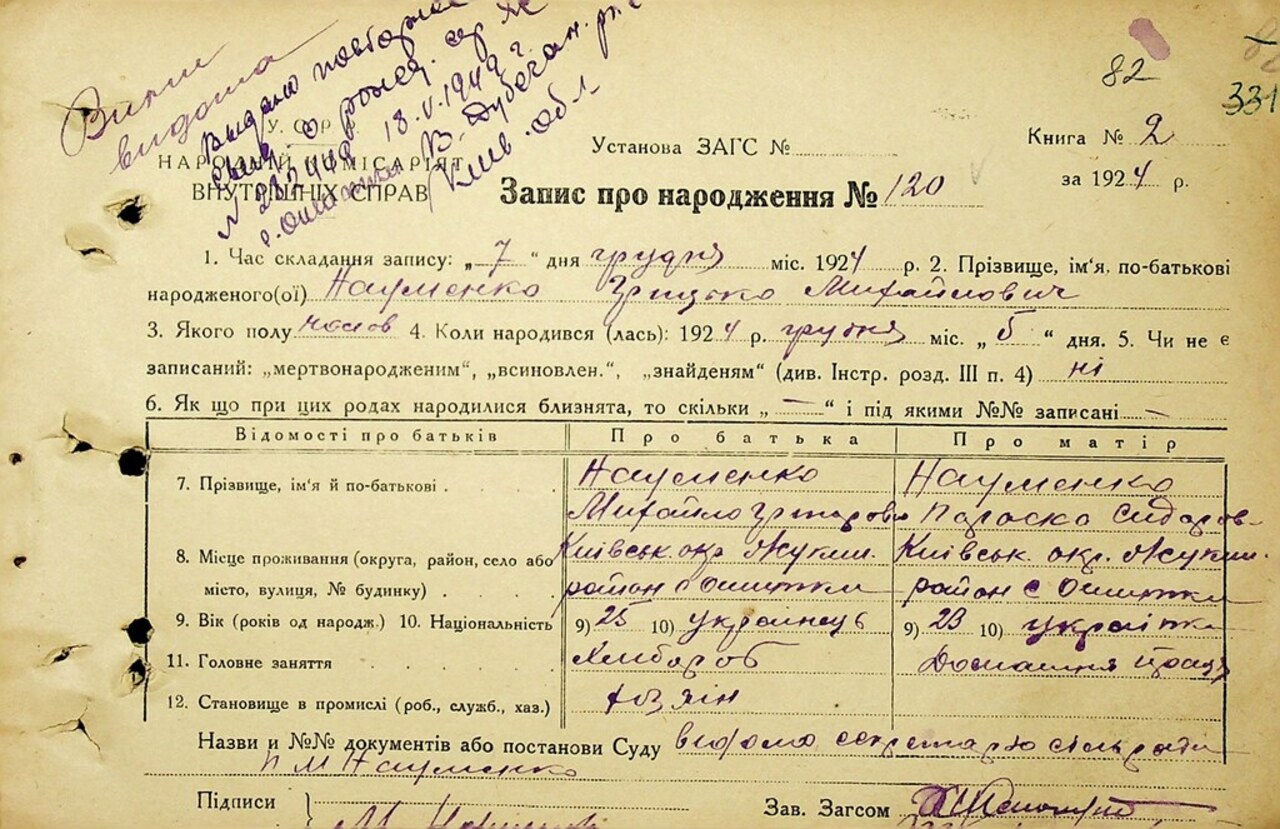 Випис
видана
Выдано повторное
о рожд.
18.V.1949 г.
В. Дубечан. р.
Киев. обл
82
331
У.
НАРОДНІЙ КОМІСАРІЯТ
ВНУТРІШНІХ СПРАВ
Установа ЗАГС №
Книга № 2
за 1924 р.
Запис про народження № 120
1. Час складання запису: „7“ дня грудня міс. 1924 р. 2. Прізвище, ім'я, по-батькові
народженого(ої) Науменко Грицько Михайлович
3. Якого полу чолов 4. Коли народився (лась): 1924 р. грудня міс. „5“ дня. 5. Чи не є
записаний: „мертвонародженим“, „всиновлен.“, „знайденям“ (див. Інстр. розд. III п. 4) ні
6. Як що при цих родах народилися близнята, то скільки „—“ і під якими №№ записані —
Відомості про батьків Про батька Про матір
7. Прізвище, ім'я й по-батькові Науменко Науменко
Михайло Григоров Параска Сидоров-
8. Місце проживання (округа, район, село або Київськ окр. Жукин. Київськ. окр. Жукин.
місто, вулиця, № будинку) район с Ошитки район с Ошитки
9. Вік (років од народж.) 10. Національність 9) 25 10) українець 9) 23 10) українка
11. Головне заняття Хлібороб Домашня праця
12. Становище в промислі (роб., служб., хаз.) хазяїн
Назви и №№ документів або постанови Суду відомо секретарю сільради
П М Науменко
Підписи
Зав. Загсом